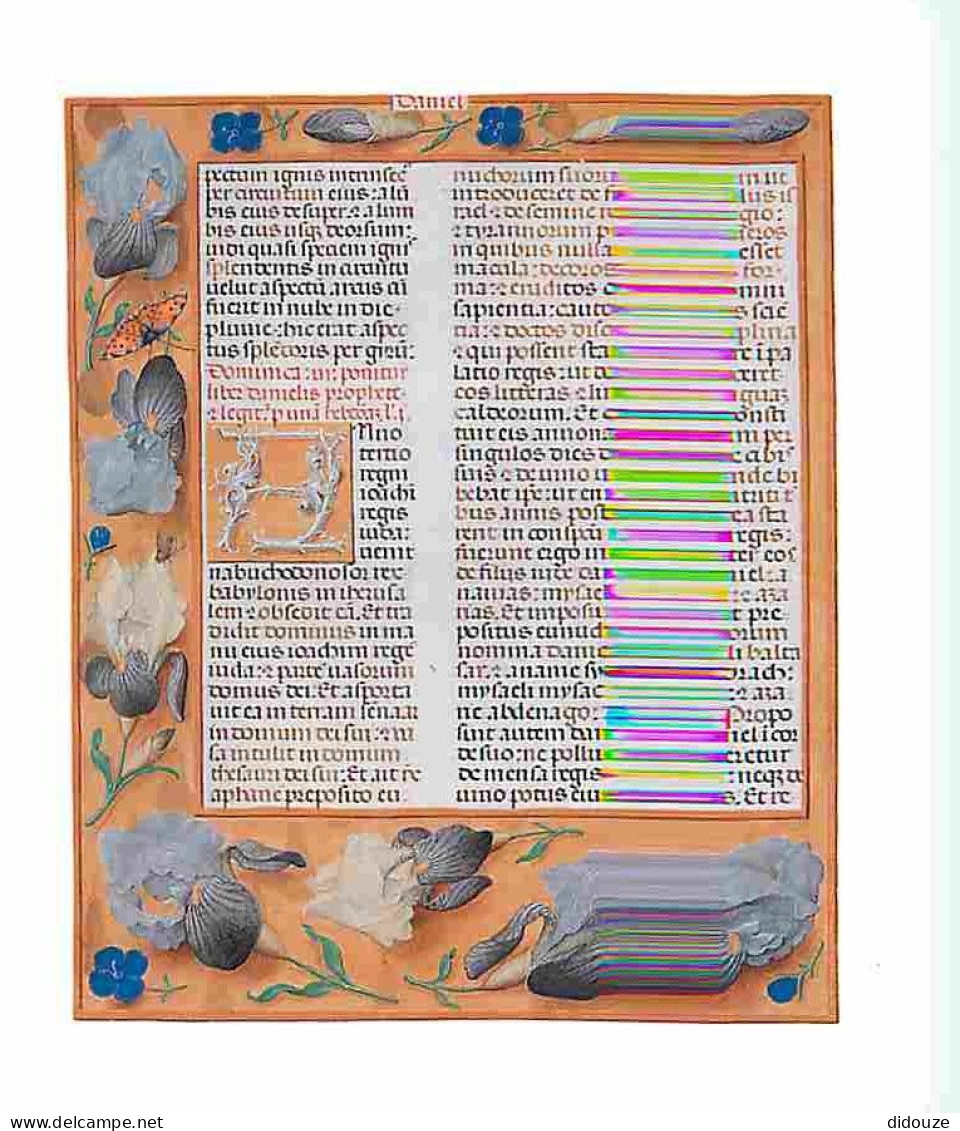 Daniel
pectum ignis intrinsecꝰ
per circuitum eius: a lū
bis eius desuper. ⁊ a lum
bis eius usqꝫ deorsum:
uidi quasi speciem ignis
splendentis in circuitu
uelut aspectū arcus cū
fuerit in nube in die
pluuie: hic erat aspec
tus splēdoris per girū:
liber danielis prophete
Anno
tertio
regni
ioachi
regis
iuda:
uenit
nabuchodonosor rex
babylonis in iherusa
lem ⁊ obsedit eā. Et tra
didit dominus in ma
nu eius ioachim regē
iuda: ⁊ partē uasorum
domus dei: Et asporta
uit ea in terram senaar
in domum dei sui: ⁊ ua
sa intulit in domum
thesauri dei sui: Et ait re
aphane preposito eu
nuchorum suoru m ut
introduceret de f lius is
rael: ⁊ de semine re gio:
⁊ tyrannorum p eros
in quibus nulla esset
macula: decoros for
ma: ⁊ eruditos o mni
sapientia: cauto s scie
tia: ⁊ doctos disc plina
⁊ qui possent sta re i pa
latio regis: ut do ceret
cos litteras ⁊ li guaꝫ
caldeorum. Et c onsti
tuit eis annona m per
singulos dies d e cibis
suis ⁊ de uino u nde bi
bebat ipse: ut en utriti t
bus annis post ea sta
rent in conspeū regis:
fuerunt ergo in ter eos
de filiis iude da niel: a
nanias: mysae : ⁊ aza
nas. Et imposu t pre
positus eunuch orum
nomina danie li balta
sar: ⁊ ananie sy drach:
mysaeli mysac : ⁊ aza
rie abdenago: Propo
suit autem dan iel i cor
de suo: ne pollu eretur
de mensa regis : neqꝫ de
uino potus eiu s. Et ro
www.delcampe.net
didouze